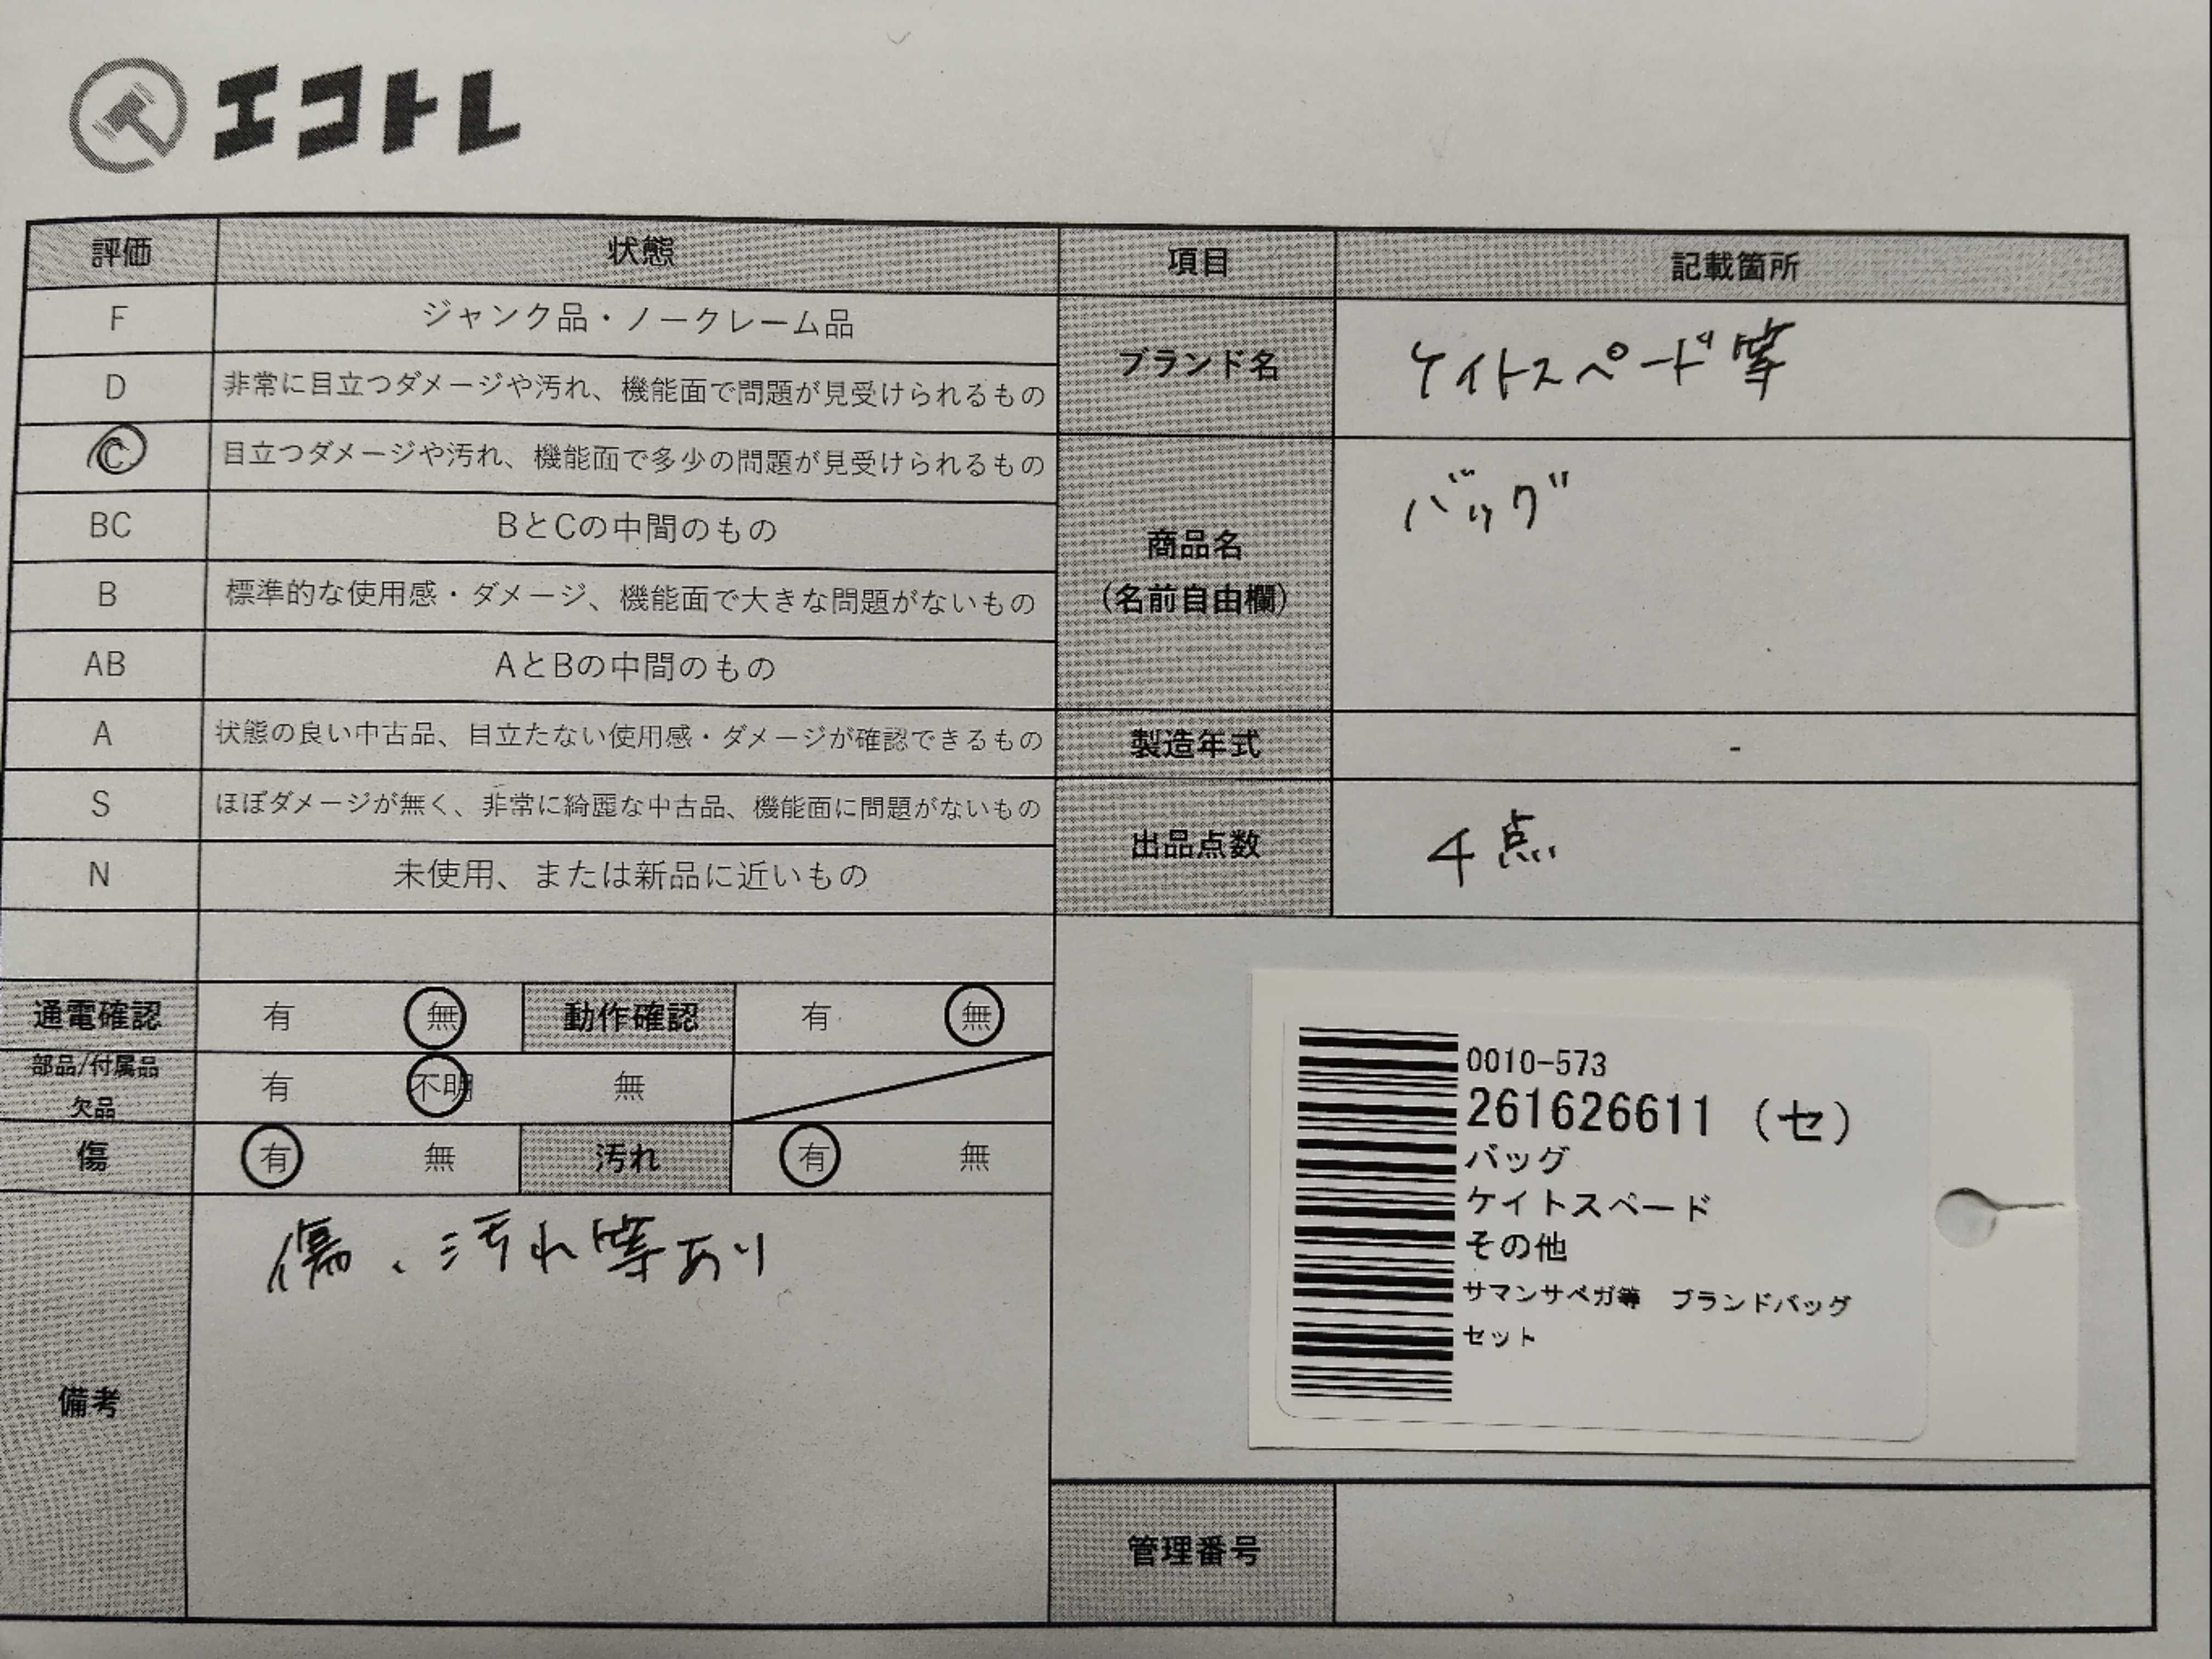 エコトレ
評価 状態 項目 記載箇所
F ジャンク品・ノークレーム品
D 非常に目立つダメージや汚れ、機能面で問題が見受けられるもの
C 目立つダメージや汚れ、機能面で多少の問題が見受けられるもの
BC BとCの中間のもの
B 標準的な使用感・ダメージ、機能面で大きな問題がないもの
AB AとBの中間のもの
A 状態の良い中古品、目立たない使用感・ダメージが確認できるもの
S ほぼダメージが無く、非常に綺麗な中古品、機能面に問題がないもの
N 未使用、または新品に近いもの
ブランド名 ケイトスペード等
商品名
(名前自由欄)
バッグ
製造年式 -
出品点数 4点
通電確認 有 無 動作確認 有 無
部品/付属品
欠品
有 不明 無
傷 有 無 汚れ 有 無
備考 傷、汚れ等あり
0010-573
261626611 (セ)
バッグ
ケイトスペード
その他
サマンサベガ等 ブランドバッグ
セット
管理番号